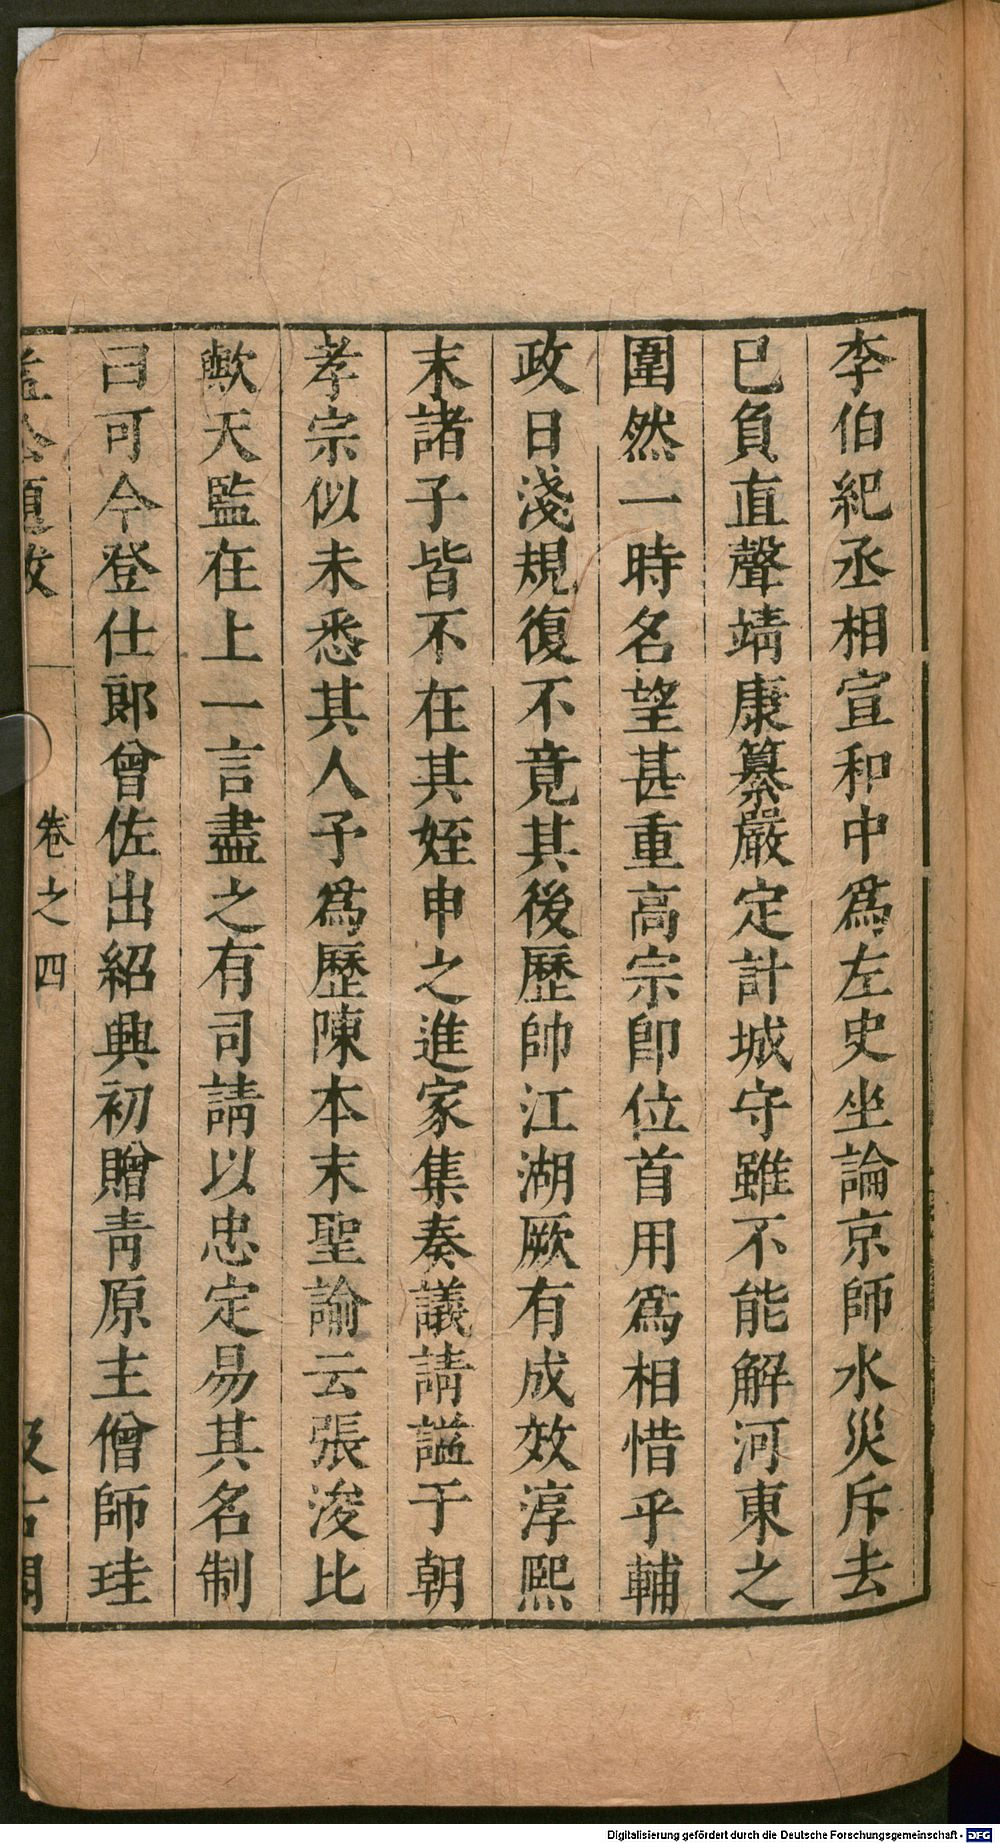 李伯紀丞相宣和中爲左史坐論京師水災斥去
已負直聲靖康纂嚴定計城守雖不能解河東之
圍然一時名望甚重高宗卽位首用爲相惜乎輔
政日淺規復不竟其後歷帥江湖厥有成效淳熙
末諸子皆不在其姪申之進家集奏議請謚于朝
孝宗似未悉其人予爲歷陳本末聖諭云張浚比
歟天監在上一言盡之有司請以忠定易其名制
曰可今登仕郎曾佐出紹興初贈青原主僧師珪
益公題跋
卷之四
汲古閣
Digitalisierung gefördert durch die Deutsche Forschungsgemeinschaft - DFG